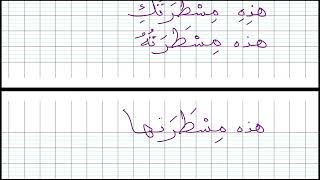 هذِهِ مِسْطَرَتُكِ
هذه مِسْطَرَتُهُ
هذه مِسْطَرَتها